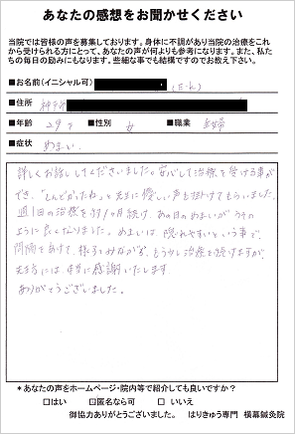 あなたの感想をお聞かせください
当院では皆様の声を募集しております。身体に不調があり当院の治療をこれ
から受けられる方にとって、あなたの声が何よりも参考になります。また、私た
ちの毎日の励みにもなります。些細な事でも結構ですのでお教え下さい。
■お名前(イニシャル可)
■住所
■年齢 29才 ■性別 女 ■職業 主婦
■症状 めまい
詳しくお話ししてくださいました。安心して治療を受ける事が
でき、「しんどかったね」と先生に優しい声も掛けてもらいました。
週1回の治療を約1ヶ月続け、あの日のめまいがウソの
ように良くなりました。めまいは、隠れやすいという事で、
間隔をあけて、様子をみながら、もう少し治療を続けますが、
先生には、本当に感謝いたします。
ありがとうございました。
*あなたの声をホームページ・院内等で紹介しても良いですか?
□はい ☑匿名なら可 □いいえ
御協力ありがとうございました。 はりきゅう専門 横幕鍼灸院